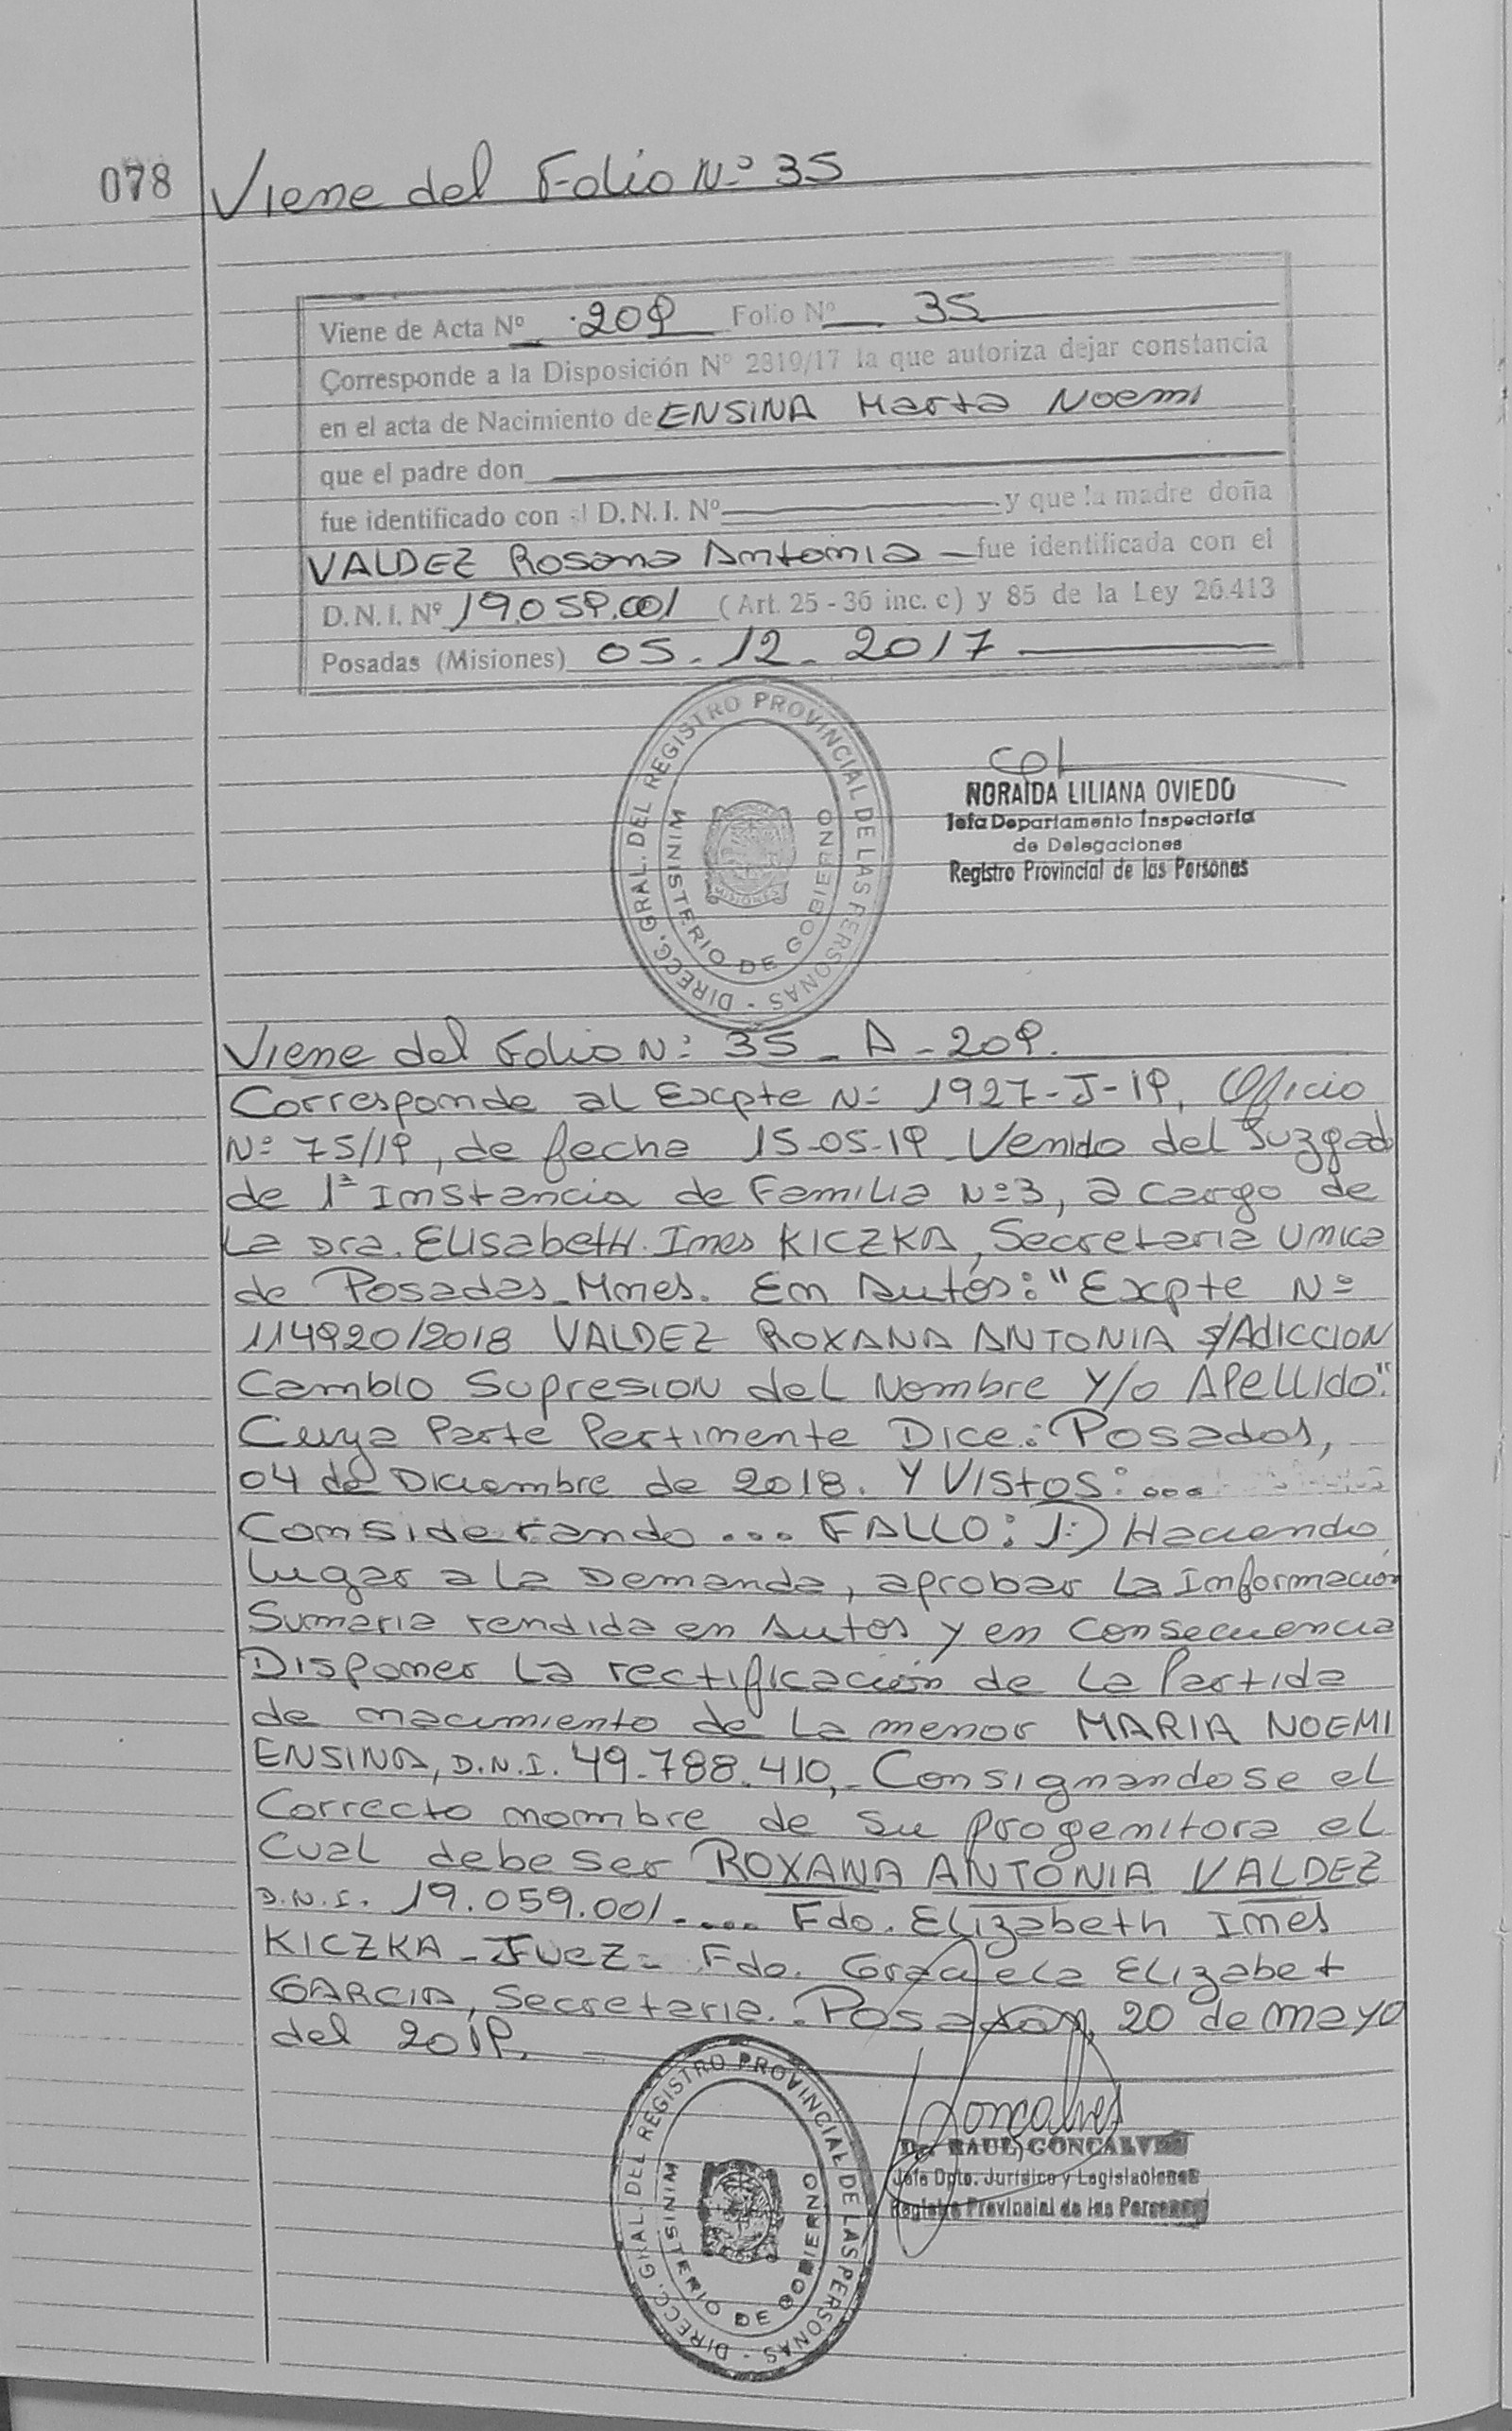 078
Viene del Folio N° 35
Viene de Acta Nº 209 Folio Nº 35
Corresponde a la Disposición Nº 2819/17 la que autoriza dejar constancia
en el acta de Nacimiento de ENSINA Marta Noemi
que el padre don
fue identificado con el D.N.I. Nº y que la madre doña
VALDEZ Rosana Antonia fue identificada con el
D.N.I. Nº 19.059.001 (Art. 25 - 36 inc. c) y 85 de la Ley 26.413
Posadas (Misiones) 05-12-2017
DIRECC. GRAL. DEL REGISTRO PROVINCIAL DE LAS PERSONAS -
MINISTERIO DE GOBIERNO
MISIONES
NORAIDA LILIANA OVIEDO
Jefa Departamento Inspectoría
de Delegaciones
Registro Provincial de las Personas
Viene del Folio N° 35 - A - 209.
Corresponde al Expte N° 1927-J-19, Oficio
N° 75/19, de fecha 15-05-19 Venido del Juzgado
de 1ª Instancia de Familia N°3, a cargo de
La Dra. ELISabetH Ines KICZKA, Secretaria Unica
de Posadas Mnes. En Autos: "Expte N°
114920/2018 VALDEZ ROXANA ANTONIA s/ADICCION
Cambio Supresion del Nombre Y/o Apellido".
Cuya Parte Pertinente Dice: Posadas,
04 de Diciembre de 2018. Y Vistos:...
Considerando ... FALLO: 1:) Haciendo
Lugar a La Demanda, aprobar La Información
Sumaria rendida en Autos y en Consecuencia
Disponer La rectificación de La Partida
de nacimiento de La menor MARIA NOEMI
ENSINA, D.N.I. 49.788.410,- Consignandose el
Correcto nombre de su progenitora el
Cual debe ser ROXANA ANTONIA VALDEZ
D.N.I. 19.059.001-.... Fdo. Elizabeth Ines
KICZKA - Juez - Fdo. Graciela Elizabet
GARCIA, Secretaria. Posadas, 20 de mayo
del 2019.
DIRECC. GRAL. DEL REGISTRO PROVINCIAL DE LAS PERSONAS -
MINISTERIO DE GOBIERNO
Goncalves
Dr. RAUL GONCALVES
Jefe Dpto. Jurídico y Legislaciones
Registro Provincial de las Personas